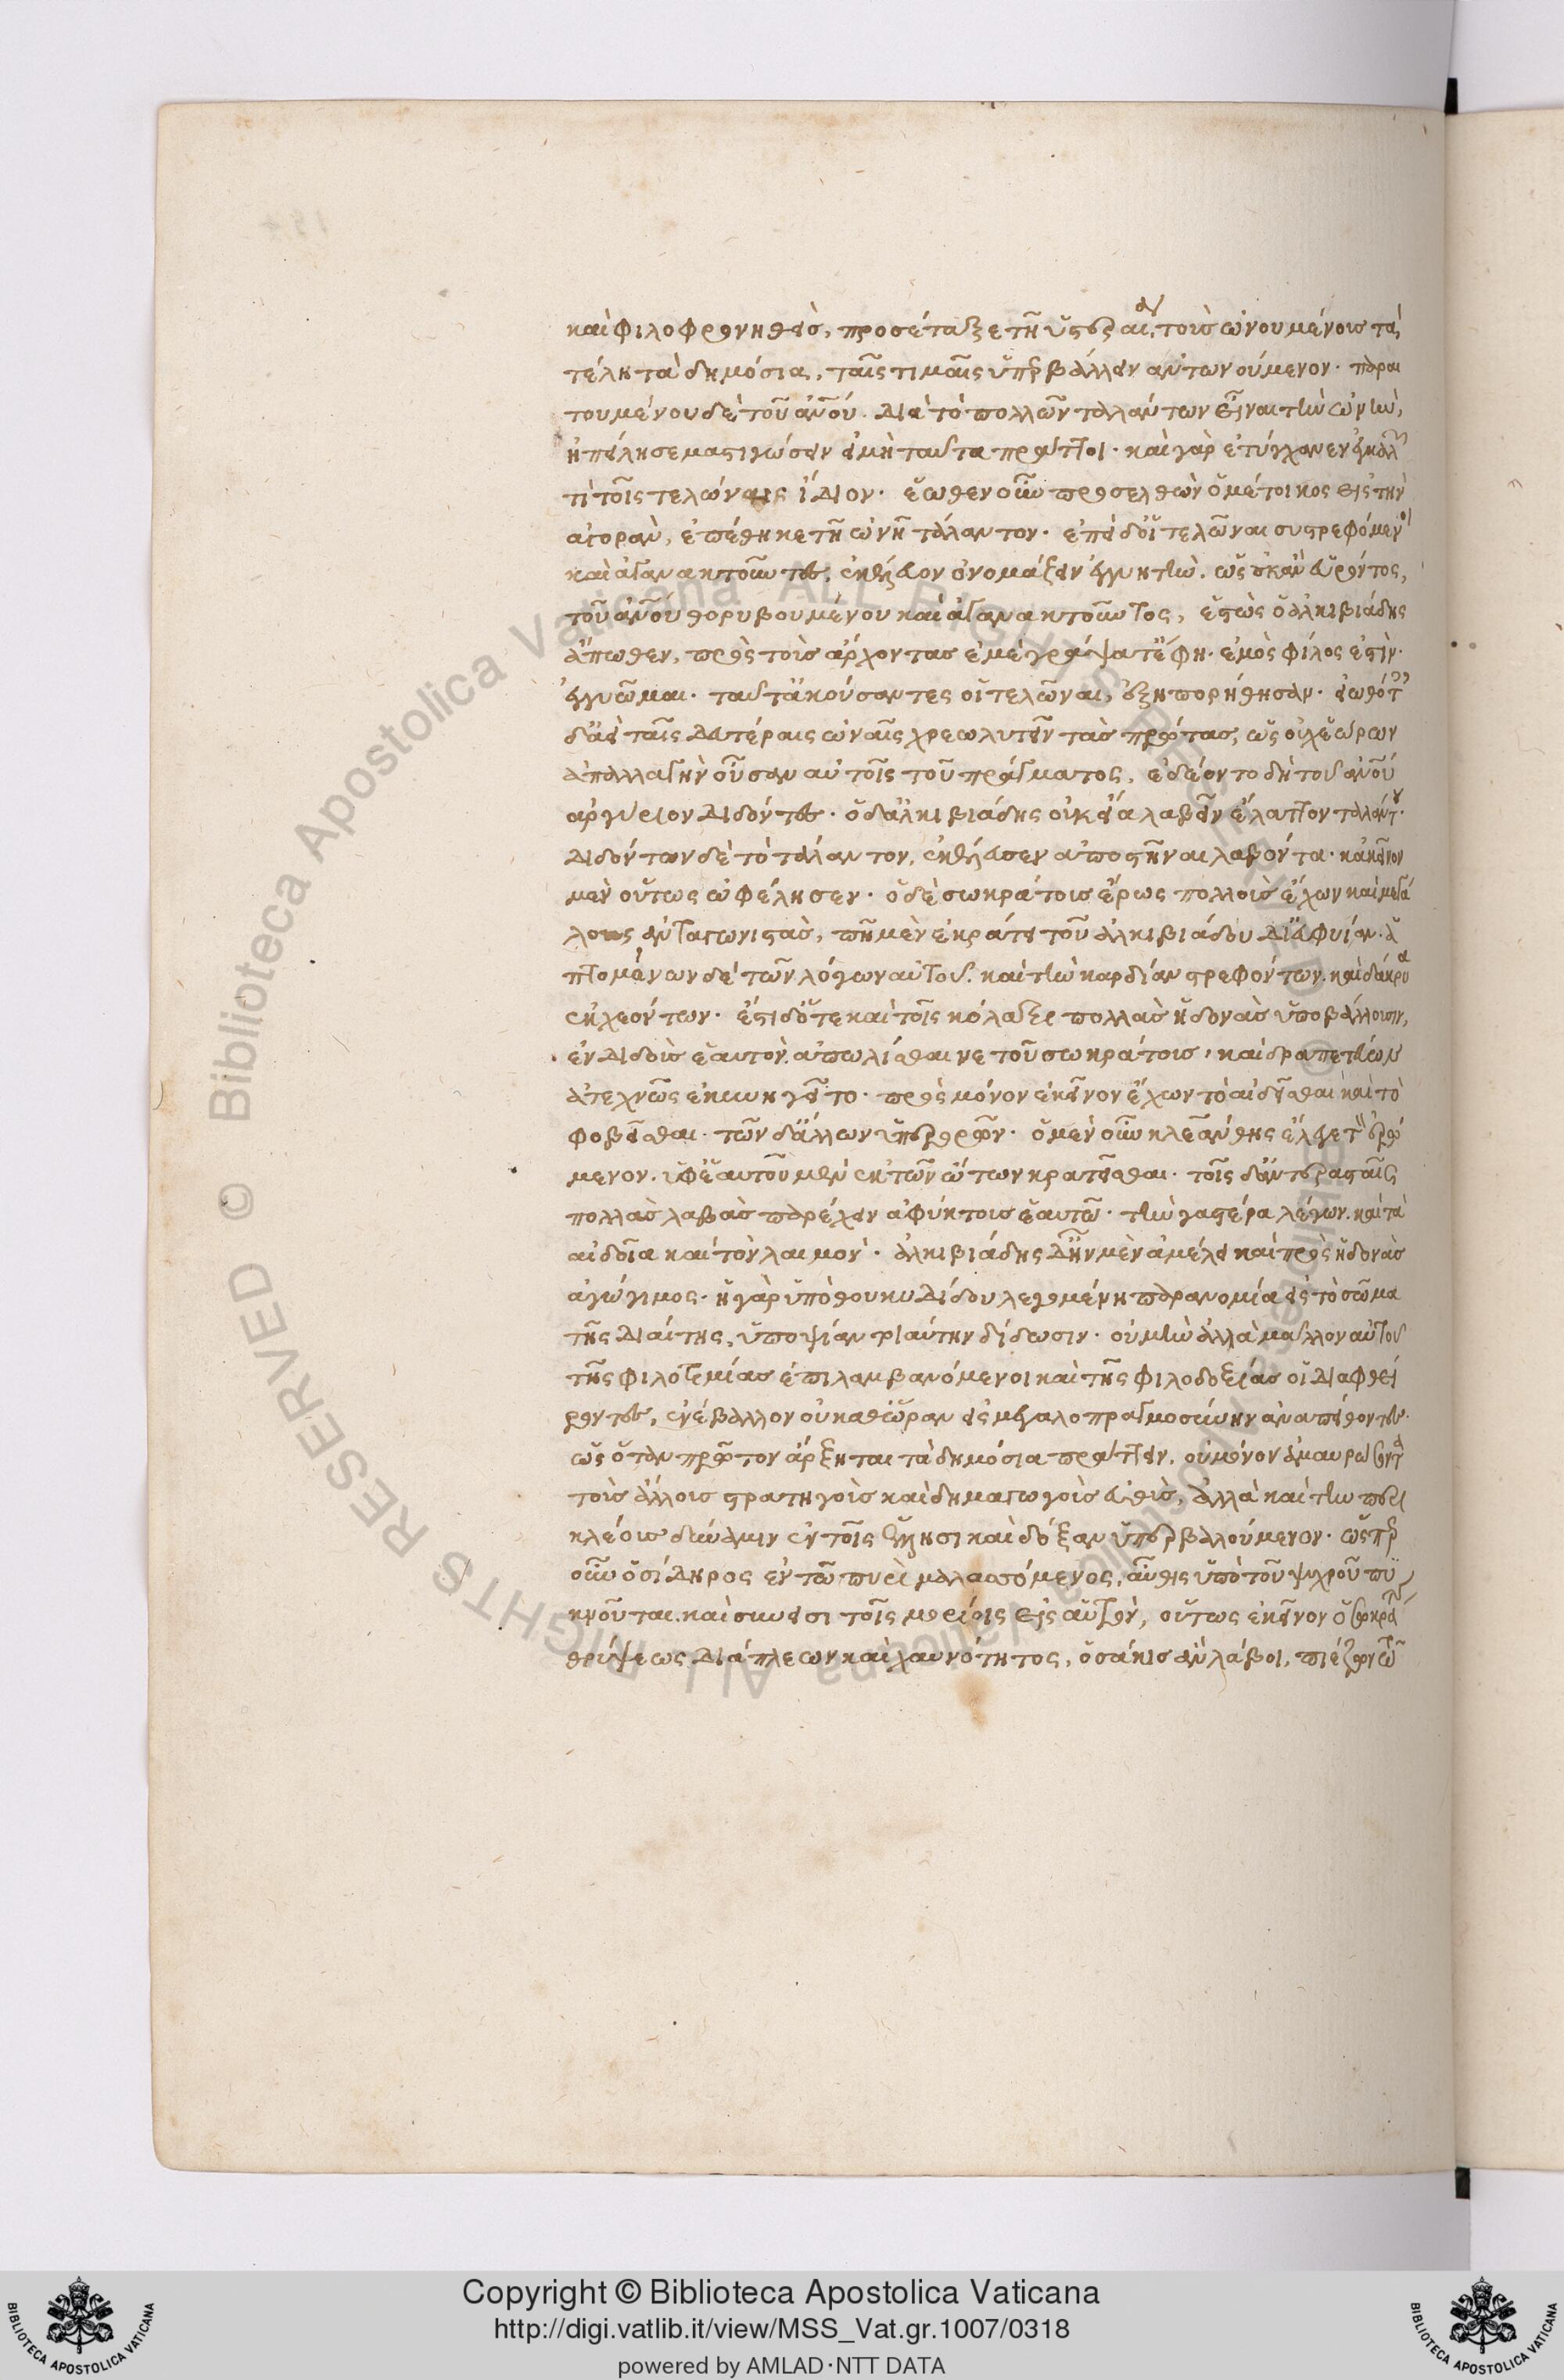 καὶ φιλοφρονηθεὶς, προσέταξε τῆ ὑστεραίαν, τοὺς ὠνουμένους τὰ
τέλη τὰ δημόσια, ταῖς τιμαῖς ὑπερβάλλειν ἀντωνούμενον. παραι
τουμένου δὲ τοῦ ἀνου. διὰ τὸ πολλῶν ταλάντων εἶναι τὴν ὠνὴν,
ἠπείλησε μαστιγώσειν εἰ μὴ ταῦτα πράττοι. καὶ γὰρ ἐτύγχανεν ἐγκαλ
τὶ τοῖς τελώναις ἴδιον. ἕωθεν οὖν προσελθὼν ὁ μέτοικος εἰς τὴν
ἀγορὰν, ἐπέθηκε τῆ ὠνῆ τάλαντον. ἐπεὶ δ' οἱ τελῶναι συστρεφόμενοι
καὶ ἀγανακτοῦντες, ἐκέλευον ὀνομάζειν ἐγγυητὴν. ὡς οὐκ ἂν εὑρόντος,
τοῦ ἀνου θορυβουμένου καὶ ἀγανακτοῦντος, ἑστὼς ὁ ἀλκιβιάδης
ἄπωθεν, πρὸς τοὺς ἄρχοντας ἐμὲ γράψατ' ἔφη. ἐμὸς φίλος ἐστὶν.
ἐγγυῶμαι. ταῦτ' ἀκούσαντες οἱ τελῶναι, ἐξηπορήθησαν. εἰωθότες
δ' ἀεὶ ταῖς δευτέραις ὠναῖς χρεωλυτεῖν τὰς πρώτας, ὡς οὐχ ἑώρων
ἀπαλλαγὴν οὖσαν αὐτοῖς τοῦ πράγματος, ἐδέοντο δὴ τοῦ ἀνου
ἀργύριον διδόντες. ὁ δ' ἀλκιβιάδης οὐκ εἴα λαβεῖν ἔλαττον ταλάντου.
διδόντων δὲ τὸ τάλαντον, ἐκέλευσεν ἀποστῆναι λαβόντα. κἀκεῖνον
μὲν οὕτως ὠφέλησεν. ὁ δὲ σωκράτους ἔρως πολλοὺς ἔχων καὶ μεγά
λους ἀνταγωνιστὰς, πῆ μὲν ἐκράτει τοῦ ἀλκιβιάδου δι' εὐφυίαν. ἁ
πτομένων δὲ τῶν λόγων αὐτοῦ. καὶ τὴν καρδίαν στρεφόντων. καὶ δάκρυα
ἐκχεόντων. ἔστι δ' ὅτε καὶ τοῖς κόλαξι πολλὰς ἡδονὰς ὑποβάλλουσιν,
ἐνδιδοὺς ἑαυτὸν. ἀπωλίσθαινε τοῦ σωκράτους, καὶ δραπετεύων
ἀτεχνῶς ἐκυνηγεῖτο. πρὸς μόνον ἐκεῖνον ἔχων τὸ αἰδεῖσθαι καὶ τὸ
φοβεῖσθαι. τῶν δ' ἄλλων ὑπερορῶν. ὁ μὲν οὖν κλεάνθης ἔλεγε τὸν ἐρώ
μενον. ὑφ' ἑαυτοῦ μὲν ἐκ τῶν ὤτων κρατεῖσθαι. τοῖς δ' ἀντερασταῖς
πολλὰς λαβὰς παρέχειν ἀθίκτους ἑαυτῶ. τὴν γαστέρα λέγων. καὶ τὰ
αἰδοῖα καὶ τὸν λαιμὸν. ἀλκιβιάδης δ' ἦν μὲν ἀμέλει καὶ πρὸς ἡδονὰς
ἀγώγιμος. ἡ γὰρ ὑπὸ θουκυδίδου λεγομένη παρανομία εἰς τὸ σῶμα
τῆς διαίτης, ὑποψίαν τοιαύτην δίδωσιν. οὐ μὴν ἀλλὰ μᾶλλον αὐτοῦ
τῆς φιλοτιμίας ἐπιλαμβανόμενοι καὶ τῆς φιλοδοξίας οἱ διαφθεί
ροντες, ἐνέβαλλον οὐ καθ' ὥραν εἰς μεγαλοπραγμοσύνην ἀναπείθοντες.
ὡς ὅταν πρῶτον ἄρξηται τὰ δημόσια πράττειν, οὐ μόνον ἀμαυρώσοντα
τοὺς ἄλλους στρατηγοὺς καὶ δημαγωγοὺς εὐθὺς, ἀλλὰ καὶ τὴν περι
κλέους δύναμιν ἐν τοῖς ἕλλησι καὶ δόξαν ὑπερβαλούμενον. ὥσπερ
οὖν ὁ σίδηρος ἐν τῶ πυρὶ μαλασσόμενος, αὖθις ὑπὸ τοῦ ψυχροῦ πυ
κνοῦται. καὶ σύνεισι τοῖς μορίοις εἰς αὑτὸν, οὕτως ἐκεῖνον ὁ σωκράτης
θρύψεως διάπλεων καὶ χαυνότητος, ὁσάκις ἂν λάβοι, πιέζων τῶ
Copyright © Biblioteca Apostolica Vaticana
http://digi.vatlib.it/view/MSS_Vat.gr.1007/0318
powered by AMLAD·NTT DATA